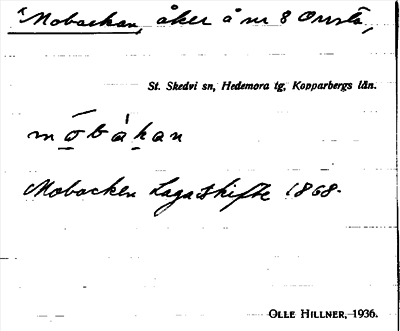 "Mobackan, åker å nr 8 Onsta,
St. Skedvi sn, Hedemora tg, Kopparbergs län.
mo̱bàḵan
Mobacken Laga skifte 1868.
OLLE HILLNER, 1936.